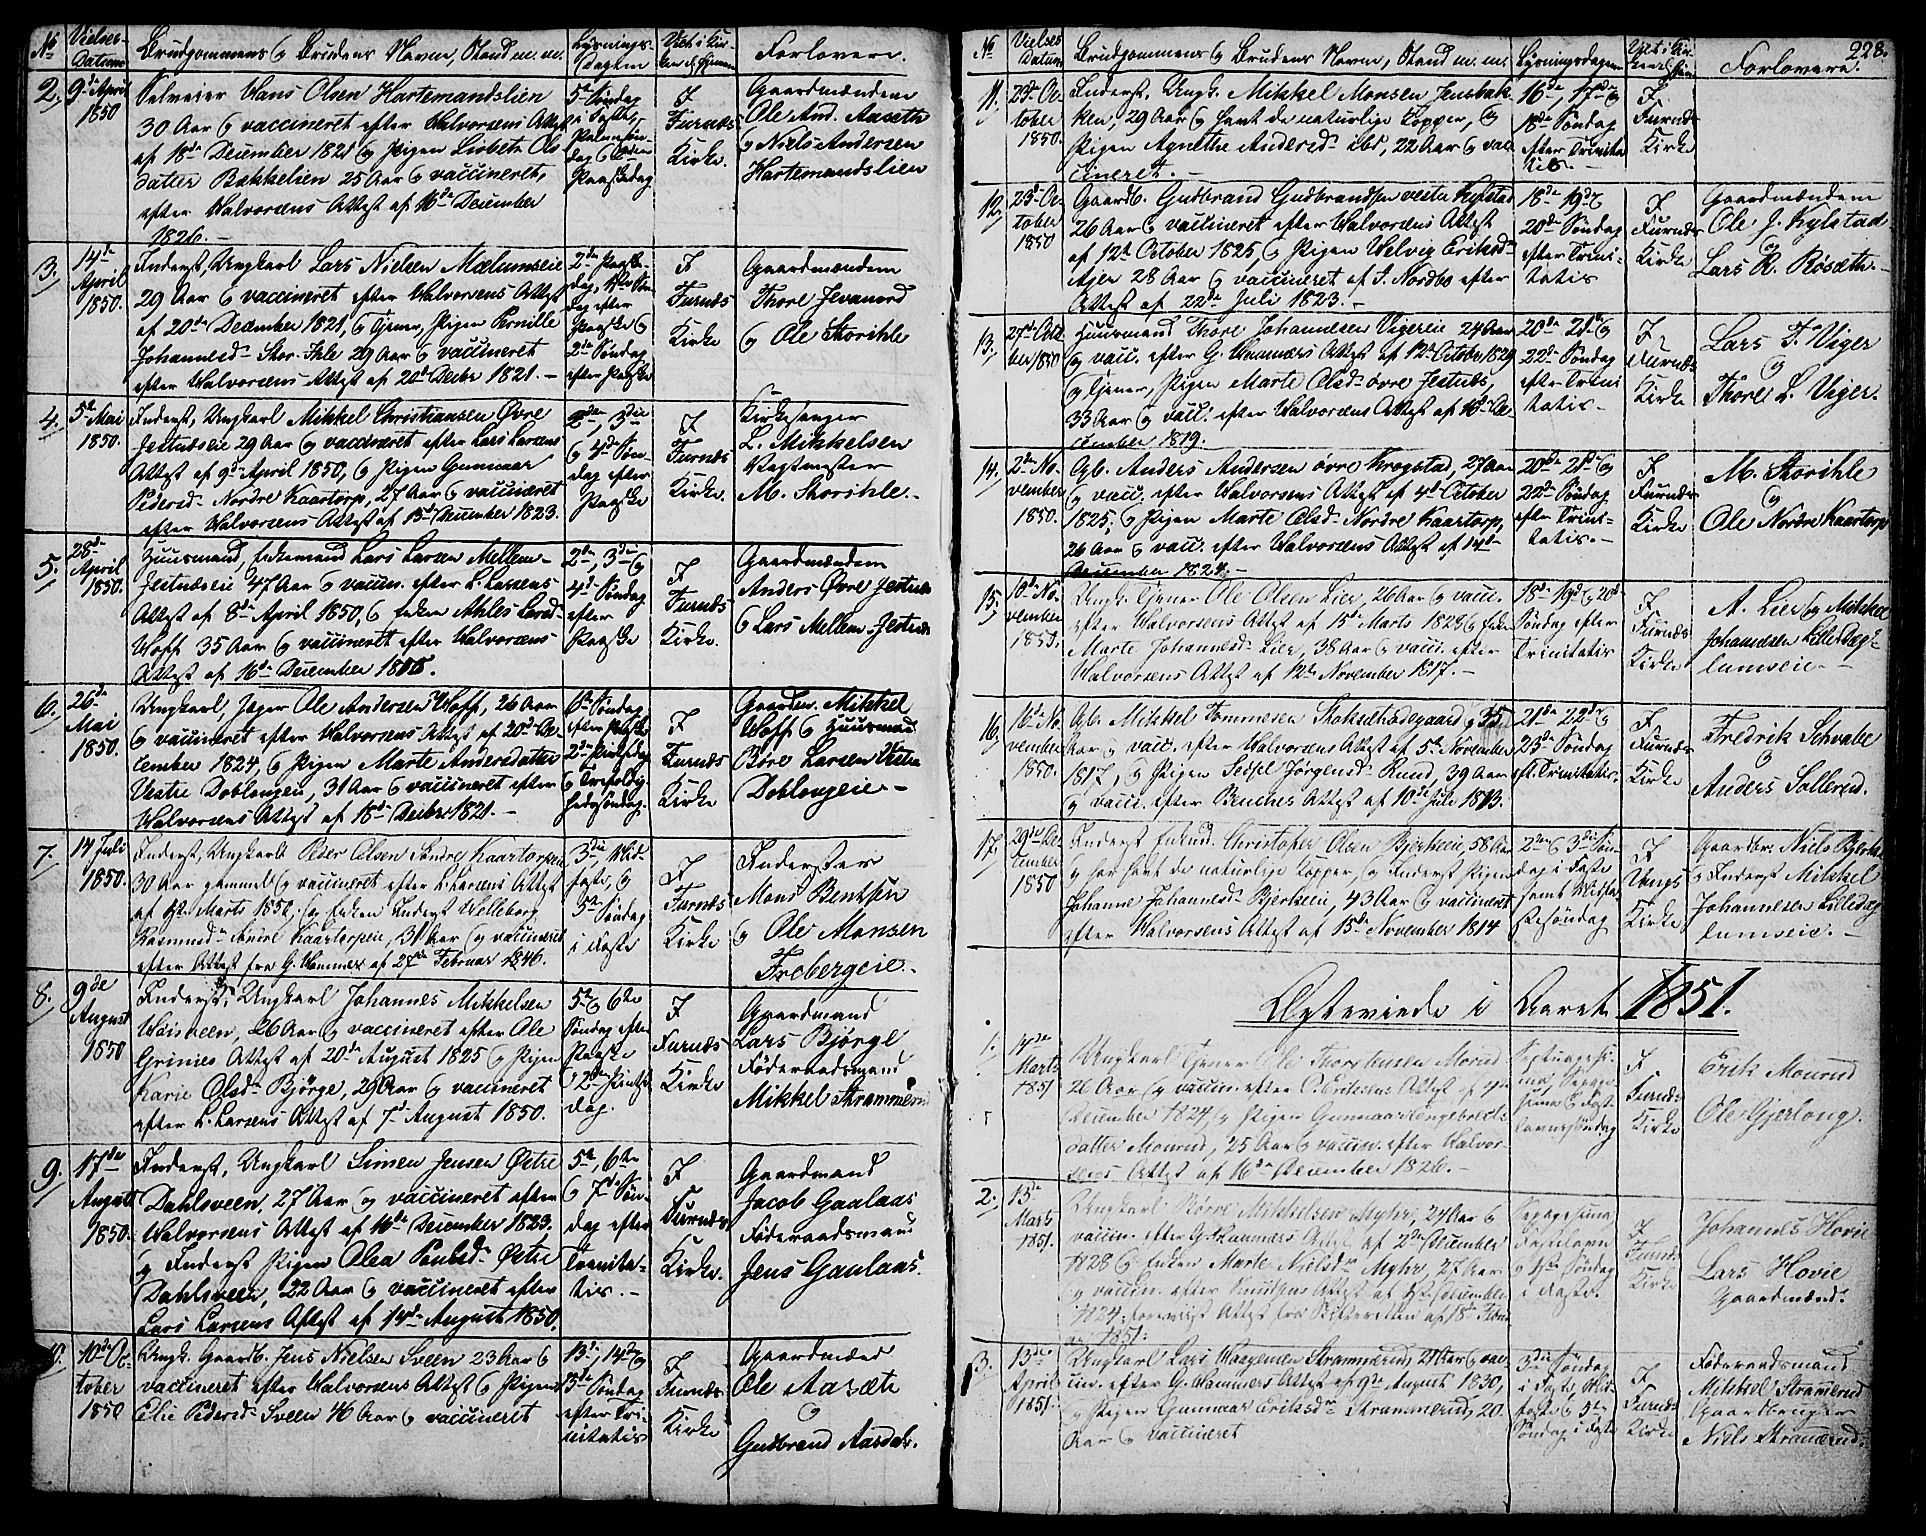 No Vielses- Datum Brudgommens og Brudens Navn, Stand m. m. Lysnings- Dagen Viet i Kir- Forlovere.
2. 9de April 1850
Selveier Hans Olsen Hartemandslien
30 Aar og vaccineret efter Halvorsens Attest
af 18de December 1821 og Pigen Lisbeth Ols-
datter Bakkelien 25 Aar og vaccineret,
efter Halvorsens Attest af 16de December
1826. –
5te Søndag
i Faste,
Palmesøn-
dag og
Paaskedag
I
Furnæs
Kirke.
Gaardmændene
Ole And. Aaseth
og Niels Andersen
Hartemandslien
3. 14de April 1850.
Inderst, Ungkarl Lars Nielsen Mælumseie
29 Aar og vaccineret efter Halvorsens Attest
af 20de December 1821, og Tjener, Pigen Pernille
Johannesd. Stor-Ihle 29 Aar og vaccineret
efter Halvorsens Attest af 20de Decbr 1821. –
2den Paaske-
dag, 1ste Søn-
dag efter
Paaske og
2den Søndag
efter Paaske
I
Furnæs
Kirke
Gaardmændene
Thore Jevanord
og Ole Storihle
4. 5te Mai 1850.
Inderst, Ungkarl Mikkel Christiansen Øvre
Jestnæseie 29 Aar og vaccineret efter Lars Larsens
Attest af 9de April 1850, og Pigen Gunnaar
Pedersd. Nordre Kaartorp, 27 Aar og vaccineret
efter Halvorsens Attest af 13de December 1823.
2den, 3die
og 4de Søn-
dag efter
Paaske
I
Furnæs
Kirke.
Kirkesanger
L. Mikkelsen
Vagtmester
M. Storihle. –
5. 28de April 1850.
Huusmand, Enkemand Lars Larsen Mellem-
Jestnæseie 47 Aar og vaccin. efter L. Larsens
Attest af 8de April 1850, og Enken Ahles Larsd.
Hoff 35 Aar og vaccineret efter Halvorsens
Attest af 16de December 1816.
2den, 3die og
4de Søndag
efter
Paaske
I
Furnæs
Kirke.
Gaardmændene
Anders Øvre Jestnæs
og Lars Mellem-Jestnæs
6. 26de Mai 1850.
Ungkarl, Jæger Ole Andersen Hoff, 26 Aar
og vaccineret efter Halvorsens Attest af 20de De-
cember 1824, og Pigen Marte Andersdatter
Vestre Doblougen, 31 Aar og vaccineret efter
Halvorsens Attest af 18de Decbr 1821. –
6te Søndag
efter Paaske
2den Pintsedag
og Trefoldig-
hedssøndag.
I
Furnæs
Kirke
Gaardm. Mikkel
Hoff og Huusmand
Børe Larsen Vestre
Doblougeie –
7. 14 Juli 1850.
Inderst, Ungkarl Peder Olsen Søndre Kaartorpeie
30 Aar gammel og vaccineret efter L. Larsens Attest
af 1ste Marts 1850, og Enken Inderst Helleborg
Rasmusd. Nordre Kaartorpeie, 31 Aar og vaccineret
efter Attest fra G. Hammer af 27de Februar 1846.
3die, Mid-
faste, og
5te Søndag
i Faste
I
Furnæs
Kirke
Inderster
Mons Bentsen
og Ole Monsen
Frebergeie. –
8. 9de August 1850
Inderst, Ungkarl Johannes Mikkelsen
26 Aar og vaccineret efter Ole
Grinies Attest af 20de August 1825 og Pigen
Karie Olsd. Bjørge, 29 Aar og vaccineret
efter L. Larsens Attest af 7de August 1850.
5te og 6te
Søndag efter
Paaske
og 2den Pintse-
dag.
I
Furnæs
Kirke
Gaardmand
Lars Bjørge
Føderaadsmand
Mikkel Strammerud
9. 17de August 1850.
Inderst, Ungkarl Simen Jensen Østre
Dahlsveen, 27 Aar og vaccineret efter
Halvorsens Attest af 16de December 1823.
og Inderst Pigen Olea Poulsd. Østre
Dahlsveen, 22 Aar og vaccineret efter
Lars Larsens Attest af 14de August 1850.
5te, 6te
og 7de Søn-
dag efter
Trinita-
tis. –
I
Furnæs
Kirke.
Gaardmand
Jacob Gaalaas
Føderaadsmand
Jens Gaalaas.
10. 10de Oc- tober 1850
Ungk. Gaardb. Jens Nielsen Sveen 23 Aar og
vaccineret efter Halvorsens Attest og Pigen
Elie Pedersd. Sveen 46 Aar og vaccineret
13de, 14de og
15de Søndag
efter Tri-
nitatis
I
Furnæs
Kirke
Gaardmænd
Ole Aaseth
og
Gudbrand Aasdal.
228.
No Vielses Datum Brudgommens og Brudens Navne, Stand m. m. Lysningsdagene Viet i Kir- Forlovere.
11. 23de Oc- tober 1850.
Inderst, Ungk. Mikkel Monsen Jensbak-
ken, 29 Aar og havt de naturlige Kopper, og
Pigen Agnethe Andersd. ibd., 22 Aar og vac-
cineret. –
16de, 17de og
18de Søndag
efter Trinita-
tis. –
I
Furnæs
Kirke
12. 23de Oc- tober 1850
Gaardb. Gudbrand Gudbrandsen vestre Kylstad
26 Aar og vaccineret efter Halvorsens Attest
af 12te October 1825, og Pigen Helvig Eriksd.
Ajer 28 Aar og vaccineret af J. Nordbo efter
Attest af 22de Juli 1823. –
18de 19de og
20de Søndag
efter Trini-
tatis
I
Furnæs
Kirke
Gaardmændene
Ole J. Kylstad
og
Lars R. Røsæth. –
13. 27de Octo- ber 1850
Huusmand Thore Johannesen Vigereie 24 Aar
og vacc. efter G. Hammers Attest af 12te October 1829
og Tjener, Pigen Marte Olsd. øvre Jestnæs,
33 Aar og vacc. efter Halvorsens Attest af 16de De-
cember 1819.
20de 21de og
22de Søndag
efter Trini-
tatis. –
I
Furnæs
Kirke
Lars T. Viger
og
Thore L. Viger.
14. 2den No- vember 1850.
Gb. Anders Andersen øvre Krogstad, 27 Aar
og vacc. efter Halvorsens Attest af 4de October
1825, og Pigen Marte Olsd. Nordre Kaartorp,
26 Aar og vacc. efter Halvorsens Attest af 14de
December 1824. –
20de 21de og
22de Søndag
efter Trini-
tatis. –
I
Furnæs
Kirke
M. Storihle
og
Ole Nordre Kaartorp
15. 10de No- vember 1850.
Ungk. Tjener Ole Olsen Lier, 26 Aar og vacc.
efter Halvorsens Attest af 15de Marts 1828 og Enken
Marte Johannesd. Lier, 38 Aar og vacc. efter
Halvorsens Attest af 12te November 1817. –
18de 19de og 20de
Søndag efter
Trinitatis
I
Furnæs
Kirke
A. Lier og Mikkel
Johannesen Lilledag-
lumseie –
16. 16de No- vember 1850.
Gb. Mikkel Tommesen Stokset 35
Aar og vacc. efter Halvorsens Attest af 5te November
1817, og Pigen Sedsel Jørgensd. Rund, 39 Aar
og vacc. efter Benches Attest af 10de Juli 1813.
21de 22de og
23de Søndag
eft. Trinitatis.
I
Furnæs
Kirke
Fredrik Schvabe
og
Anders Sollerud.
17. 29de De- cember 1850
Inderst Enkmd. Christopher Olsen Bjerkeeie, 58 Aar
og har havt de naturlige Kopper, og Inderst Pigen
Johanne Johannesd. Bjerkeeie, 43 Aar og vaccineret
efter Halvorsens Attest af 15de November 1814
2den og 3die Søn-
dag i Faste
samt Midfa-
stesøndag
I
Vangs
Kirke
Gaardbr. Niels Bjerke
og Inderst Mikkel
Johannesen Lilledag-
lumseie. –
Ægteviede i Aaret 1851.
1. Marts 1851
Ungkarl Tjener Ole Thorstensen Morud
26 Aar og vaccin. efter O. Eriksens Attest af
December 1824, og Pigen Gunnaar Engebrets-
datter Mourud, 25 Aar og vaccin. efter Halvor-
sens Attest af 16de December 1826. –
Septuagesi-
ma, Sexage-
sima og Faste-
lavnssøndag
I
Furnæs
Kirke
Erik Mourud
Ole Gjerlong.
2. 15de Marts 1851.
Ungkarl Børre Mikkelsen Myhr, 24 Aar og
vaccin. efter G. Hammers Attest af 2den December
1828 og Enken Marte Nielsd. Myhr, 27 Aar
og vaccin. efter Knudsens Attest af December
1824; foreviist Attest fra Skifteretten af 18de Febru-
ar 1851.
Sexagesima
Fastelavn
og 1ste Søndag
i Faste.
I
Furnæs
Kirke
Johannes Hovie
Lars Hovie
Gaardmænd.
3. 13de April 1851.
Ungkarl Lars Haagensen Strammerud, 21 Aar og vac-
cin. efter G. Hammers Attest af 9de August 1830,
og Pigen Gunnaar Eriksd. Strammerud, 20
Aar og vaccineret
3die Søndag
i Faste, Mid-
faste og 5te
Søndag i Faste
I
Furnæs
Kirke
Føderaadsmand
Mikkel Strammerud
Gaardbruger
Niels Strammerud.